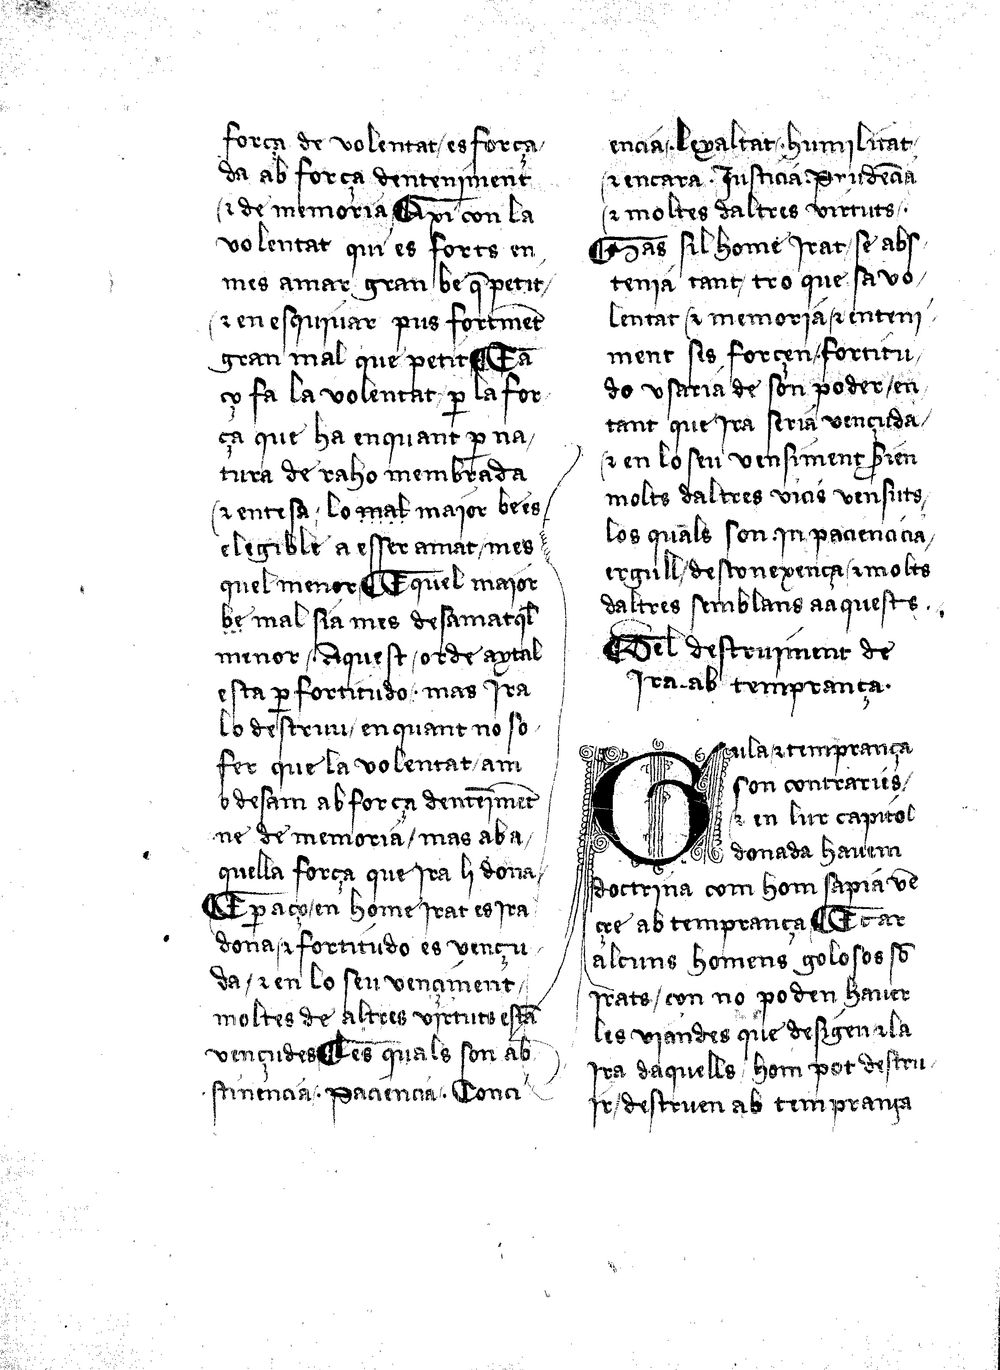 força de volentat / es força /
da ab força denteniment
⁊ de memoria ¶ Axi con la
volentat qui es forts en
mes amar gran be q̄ petit /
⁊ en esquiuar pus fortmēt
gran mal que petit ¶ E a
ço fa la volentat / ꝑ la for
ça que ha enquant ꝑ na /
tura de raho membrada
⁊ entesa / lo mal maior be es
elegible a esser amat / mes
quel menor ¶ E quel maior
be mal sia mes desamat q̄l
menor / . Aquest / orde aytal
esta ꝑ fortitudo · mas Ira
lo destruu / en quant no so
fer que la volentat / am
o desam ab força dentēimēt
ne de memoria / mas ab a /
quella força que Ira li dona /
¶ E ꝑ aço / en home irat es ira
dona / ⁊ fortitudo es vençu
da / ⁊ en lo seu venciment /
moltes de altres virtuts estā
vençudes ¶ Les quals son ab
stinencia · paciencia · Conci
encia · . lexaltat · humilitat
⁊ encara · Iusticia · Prudēcia
⁊ moltes daltres virtuts ·
¶ Mas sil home Irat / se abs
tenia tant / tro que sa vo /
lentat ⁊ memoria ⁊ enteni
ment ses forçen / fortitu /
do vsaria de son poder / en
tant que Ira seria vençuda /
⁊ en lo seu vensiment ꝑien
molts daltres vicis vensuts /
los quals son Inpaciencicia /
ergull / desconexença / ⁊ molts
daltres semblans a aquests · .
¶ Del destruiment de
Ira · ab temprança ·
Gula ⁊ temprança
son contraries /
⁊ en lur capitol
donada hauem
doctrina com hom sapia vē
çre ab temprança ¶ E car
alcuns homens golosos sō
irats / con no poden hauer
les viandes que desigen ⁊ la
Ira daquells / hom pot destru
ir / destruen ab temprança